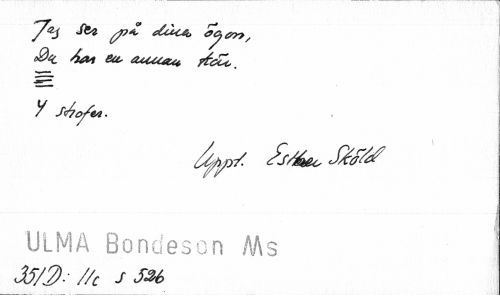 Jag ser på dina ögon,
Du har en annan kär.
4 strofer.
Uppt. Esther Sköld
ULMA Bondeson Ms
351D: 11c s 526